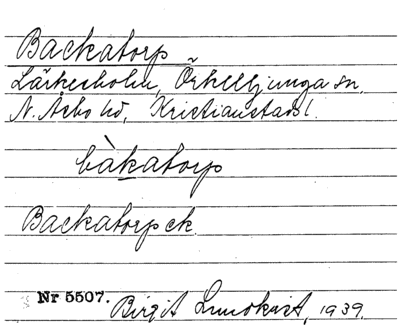 Backatorp
Lärkesholm, Örkelljunga sn.
N. Åsbo hd, Kristianstads l.
bàkatorp
Backatorp ck.
Nr 5507. Birgit Lundkvist, 1939.